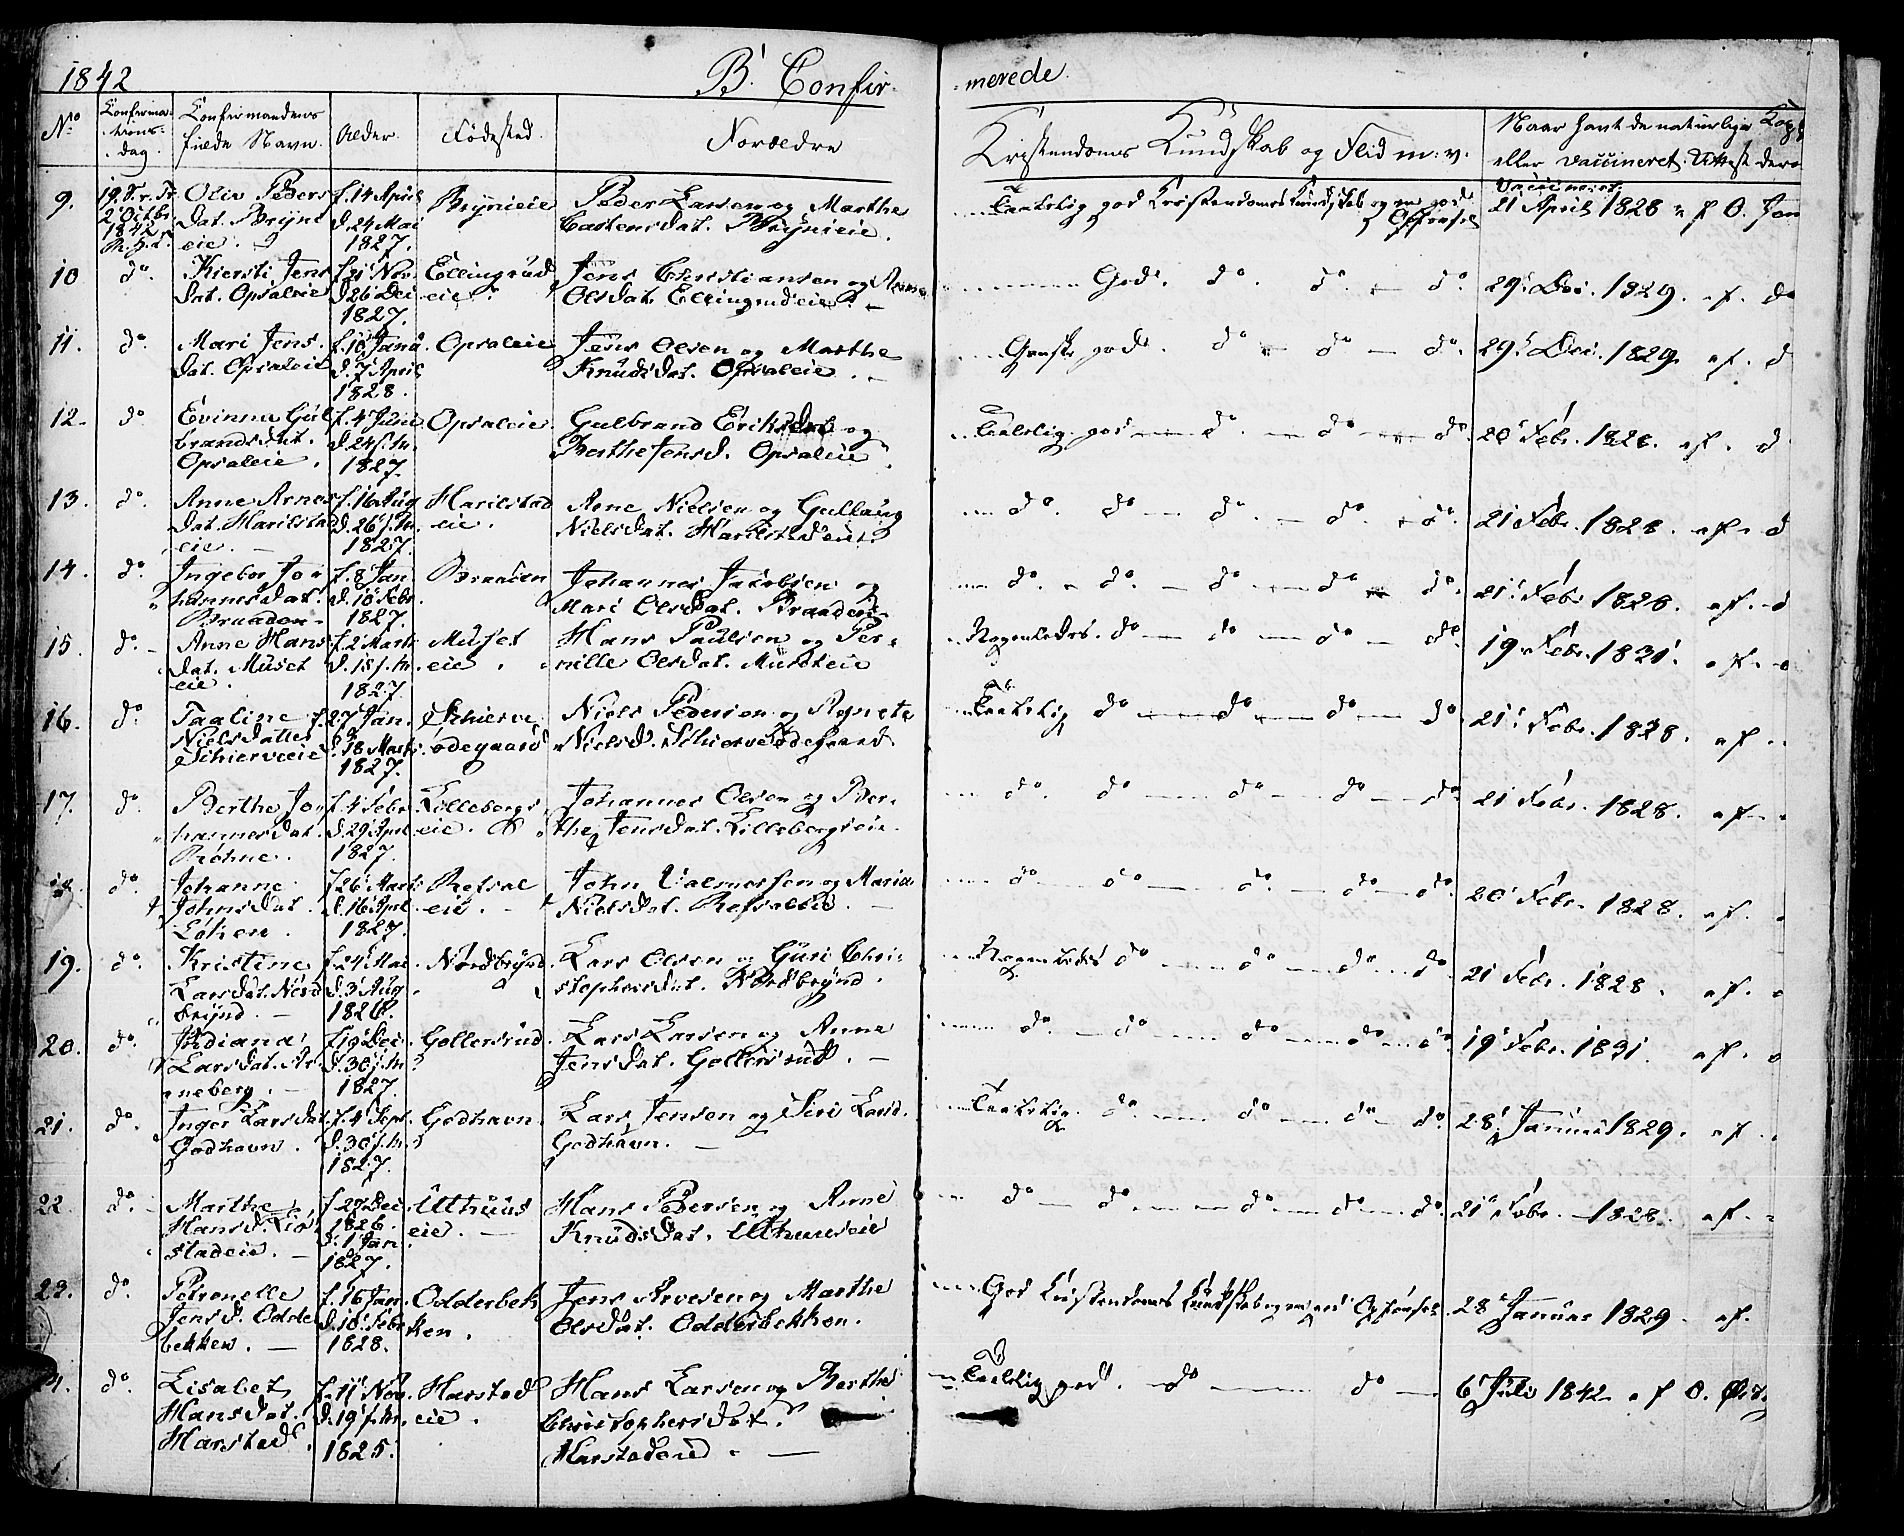 1842
B. Confir-
merede.
No
Confirma-
tions-
dag.
Confirmandens
fulde Navn.
Alder.
Fødested.
Forældre
Kristendoms Kundskab og Flid m. v.
Naar havt de naturlige Kop
eller vaccineret. Attest dero
9.
2 Octbr
1842
Oliv Peders
dat. Brynd
eie.
f. 14 April
d. 24 Mai
1827.
Bryneie
Peder Larsen og Marthe
Castensdat. Bryneie.
Taalelig god Kristendoms Kundskab og en god
Opførsel
Vaccineret
21 April 1828 af O. Jon
10
do.
Kiersti Jens
dat. Opsaleie
f. 21 Nov.
d. 26 Dec
1827.
Ellingsrud
eie.
Jens Christiansen og Anne
Olsdat. Ellingrudeie.
God. do. do. do.
29 Dec. 1829. af. do
11.
do.
Mari Jens
dat. Opsaleie
f. 10 Janu
d. 7 April
1828.
Opsaleie
Jens Olsen og Marthe
Knudsdat. Opsaleie.
Ganske god. do do do.
29 Dec. 1829 af. d
12.
do
Evinna Gul
brandsdat.
Opsaleie.
f. 4 Juni
d. 24 s. m.
1827.
Opsaleie.
Gulbrand Eriksen og
Berthe Jensd. Opsaleie.
Taalelig god do do do.
20 Febr. 1828. af. d
13.
do.
Anne Arnes
dat. Harilstad
eie.
f. 16 Aug
d. 26 s. m.
1827.
Harilstad
eie.
Arne Nielsen og Gullaug
Nielsdat. Harilstadeie.
do. do do. do. do.
21 Febr. 1828. af. d
14.
do.
Ingebor Jo
hannesdat.
Braaden
f. 8 Jan
d. 18 Febr.
1827.
Braaden
Johannes Jacobsen og
Mari Olsdat. Braaden
do. do. do do do.
21 Febr. 1828. af. d
15
do.
Anne Hans
dat. Muset
eie.
f. 2 Marts
d. 18 s. m.
1827.
Muset
eie.
Hans Paulsen og Per-
nille Olsdat. Museteie
Nogenledes. do do do do.
19 Febr. 1831. af.
16.
do.
Taaline
Nielsdatter
Schierveeie
f. 27 Jan.
d. 18 Marts.
1827.
Schierve
ødegaard
Niels Pedersen og Agnete
Nielsd. Schierveødegaard.
Taalelig do do do do.
21 Febr. 1828. af.
17.
do.
Berthe Jo
hannesdat.
Røhne.
f. 4 Febr
d. 29 Apr.
1827.
Lillebergs
eie.
Johannes Olsen og Ber-
the Jensdat. Lillebergseie.
do. do do do do
21 Febr. 1828. af.
18.
do.
Johanne
Johnsdat.
Løken.
f. 26 Marts
d. 16 Apr.
1827.
Refsal
eie.
John Halvorsen og Maria
Nielsdat. Refsaleie.
do do do. do do.
20 Febr. 1828. af.
19.
do.
Kristine
Larsdat. Nord
brynd.
f. 24 Mai
d. 3 Aug
1826.
Nordbrynd
Lars Olsen og Guri Chri-
stophersdat. Nordbrynd.
Nogenledes do do do do.
21 Febr. 1828. af.
20.
do.
Indiana
Larsdat. Ar
neberg.
f. 19 Dec.
d. 30 s. m.
1827.
Gollersrud
Lars Larsen og Anne
Jensdat. Gollersrud.
do. do do do do.
19 Febr. 1831. af.
21.
do.
Inger Larsdat
Godhavn.
f. 4 Sept.
d. 30 s. m.
1827.
Godhavn.
Lars Jensen og Siri Larsd.
Godhavn.
Taalelig. do. do do do.
28 Januar 1829. af.
22.
do.
Marthe
Hansd. Lie
stadeie.
f. 27 Dec
1826.
d. 1 Jan.
1827.
Uthuus
eie.
Hans Pedersen og Anne
Knudsdat. Uthuuseie
do do do do do.
21 Febr. 1828. af.
23.
do.
Petronelle
Jensd. Odder
bekken.
f. 16 Jan.
d. 10 Febr
1828.
Odderbek
ken.
Jens Arvesen og Marthe
Olsdat. Odderbekken.
God Kristendoms Kundskab og en god Opførsel
28 Januar 1829. af.
24.
do.
Lisabet
Hansdat.
Harstad.
f. 11 Nov.
d. 19 s. m.
1825.
Harstad
eie.
Hans Larsen og Berthe
Christophersdat.
Harstadeie.
Taalelig god. do do
6 Juli 1842 af O.